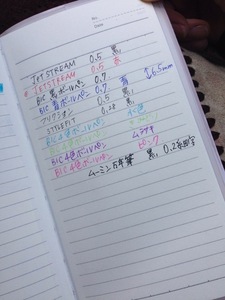 No.
Date
JETSTREAM 0.5 黒
JETSTREAM 0.5 赤
BIC 黒ボールペン 0.7
BIC 青ボールペン 0.7 青
フリクション 0.5 黒
STYLEFIT 0.28 黒
BIC 4色ボールペン 水色
BIC 4色ボールペン
BIC 4色ボールペン ムラサキ
BIC 4色ボールペン ピンク
ムーミン万年筆 黒 0.2
6.5mm